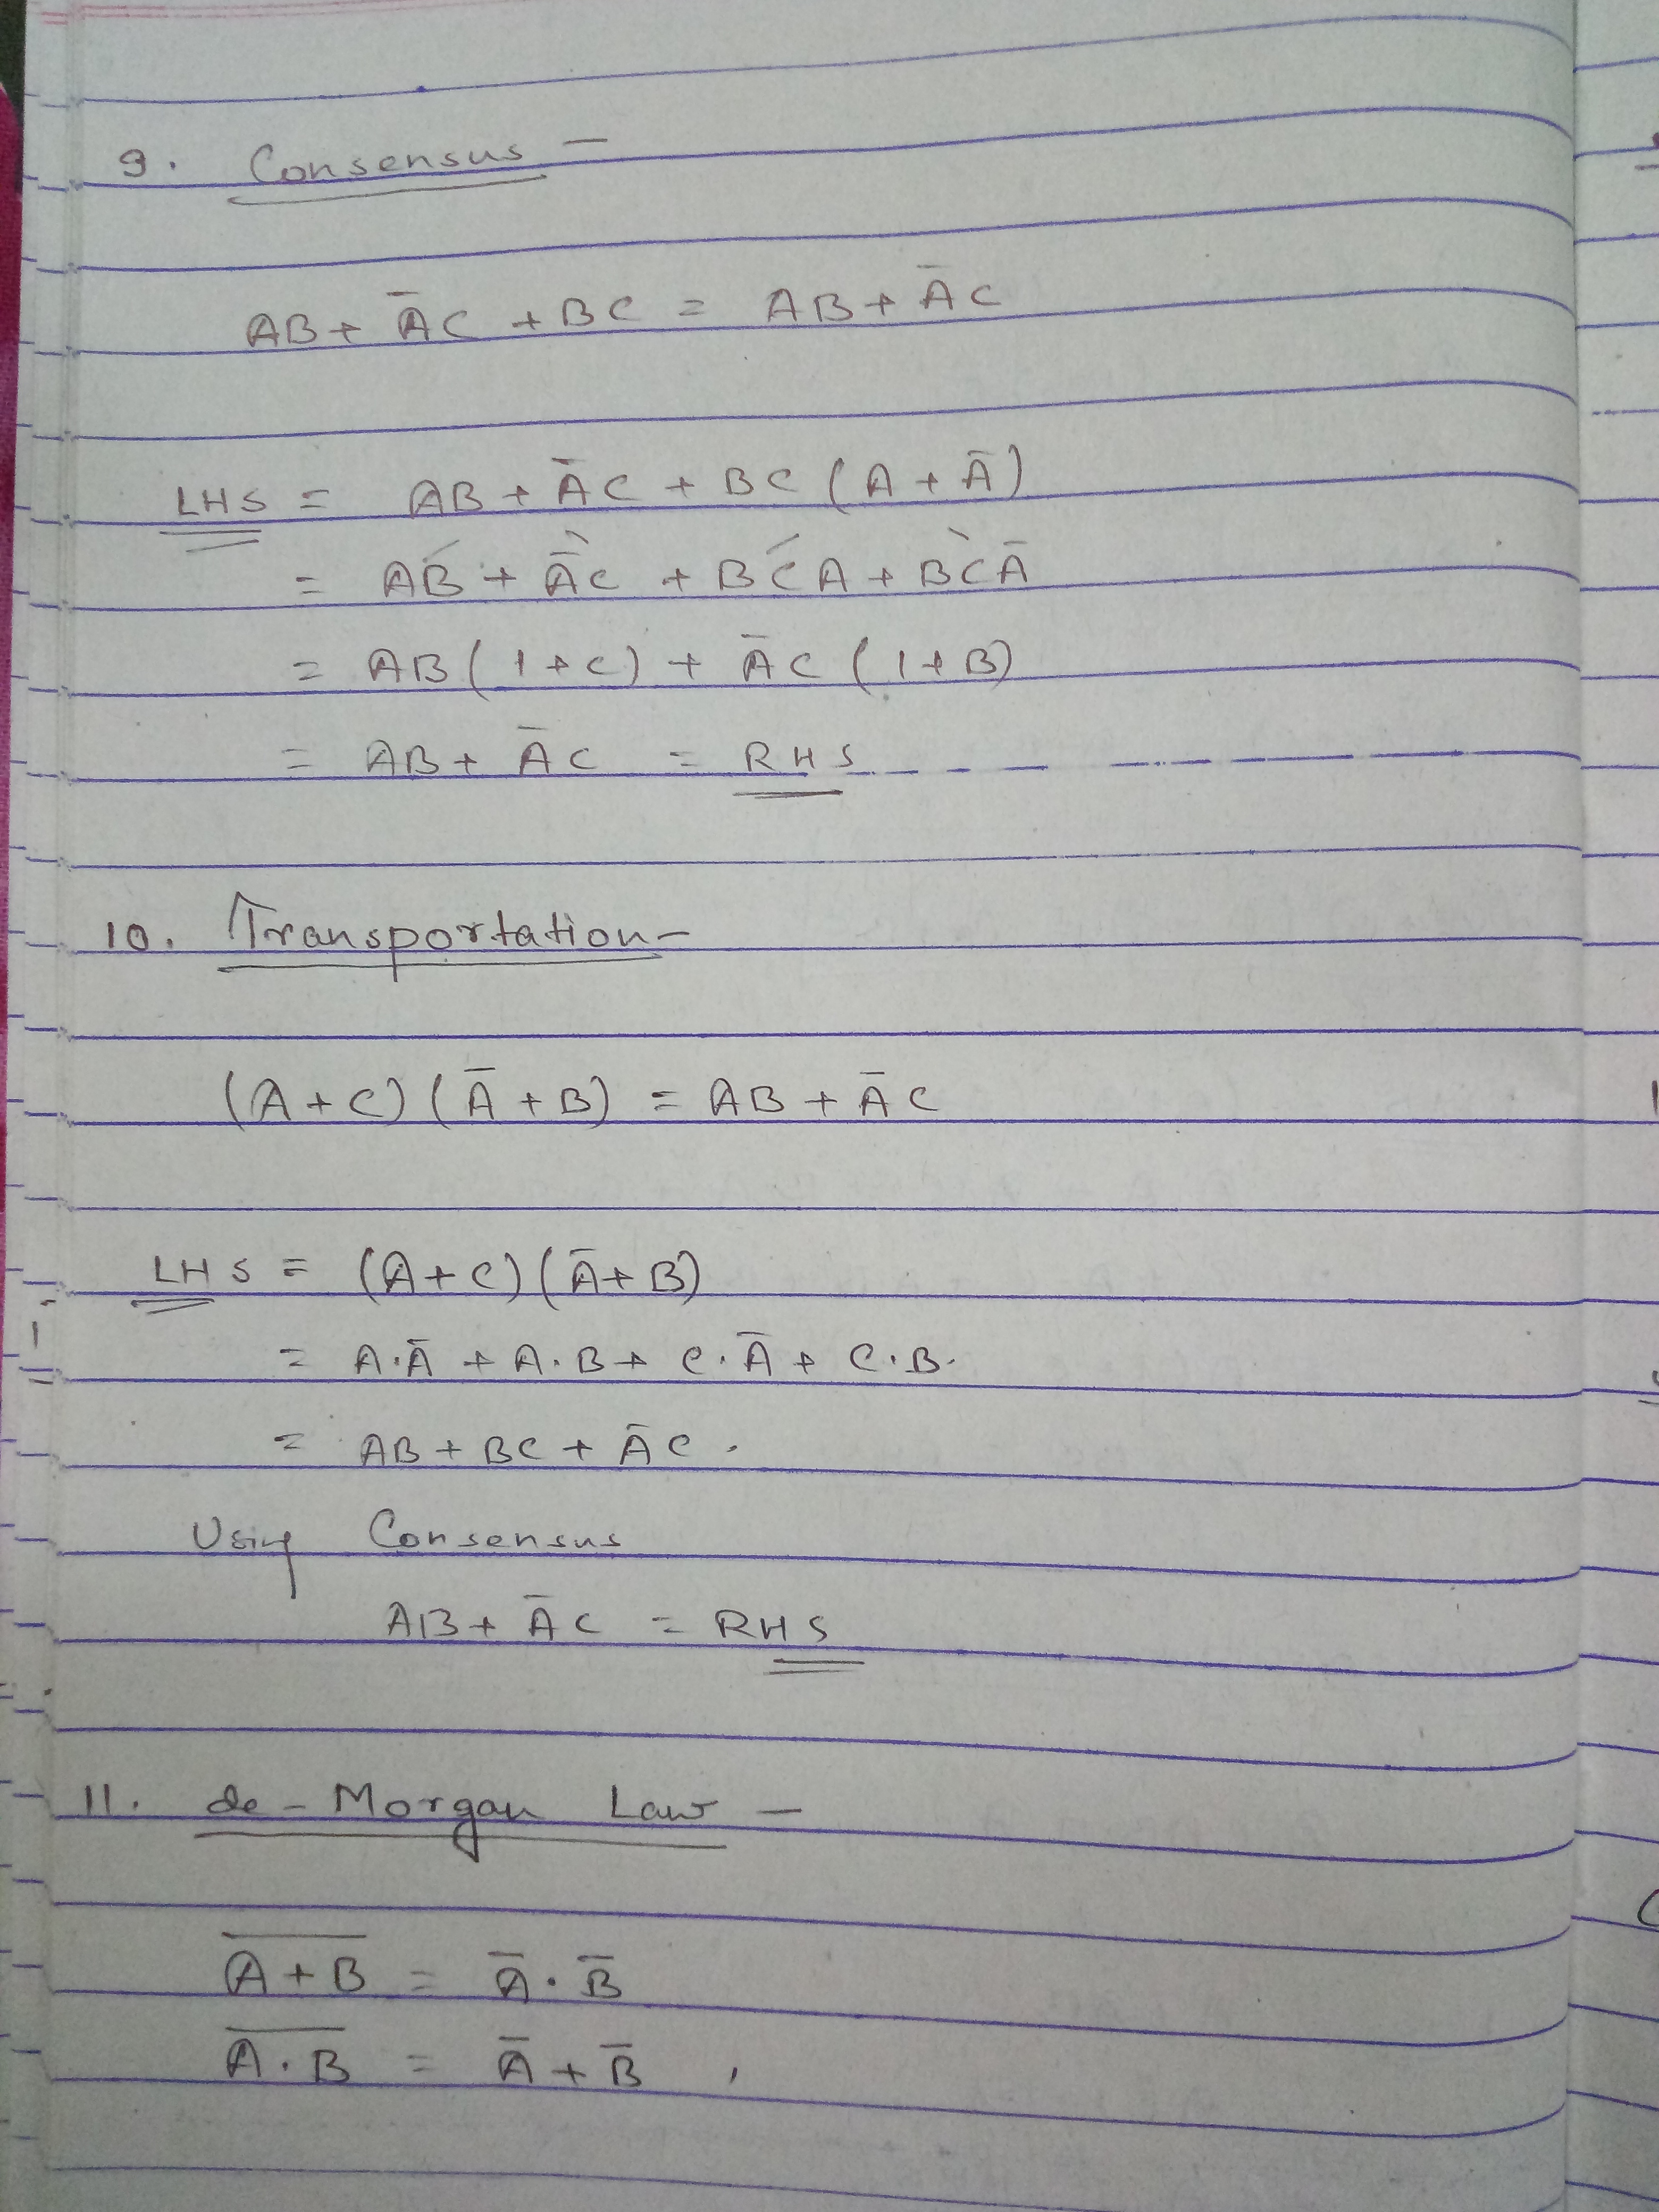 9. Consensus –
AB + A̅C + BC = AB + A̅C
LHS = AB + A̅C + BC (A + A̅)
= AB + A̅C + BCA + BCA̅
= AB (1+C) + A̅C (1+B)
= AB + A̅C = RHS
10. Transportation –
(A+C) (A̅+B) = AB + A̅C
LHS = (A+C) (A̅+B)
= A·A̅ + A·B + C·A̅ + C·B.
= AB + BC + A̅C.
Using Consensus
AB + A̅C = RHS
11. de-Morgan Law –
A̅+̅B̅ = A̅ · B̅
A̅·̅B̅ = A̅ + B̅ ,